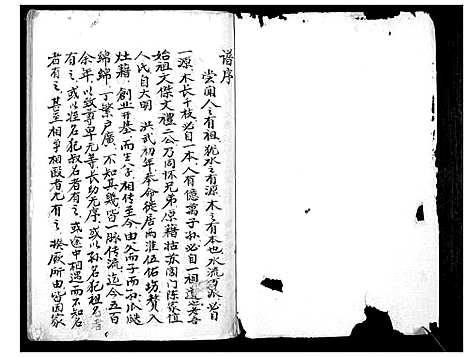 谱序
尝闻人之有祖犹水之有源木之有本也水流万派必自
一源木长千枝必自一本人有億萬子孙必自一祖
始祖文傑文禮二公乃同怀兄弟原籍姑苏阊门陈家位
人氏自大明 洪武初年奉命徙居两淮伍佑坊赘入
灶籍創业开基而生子相传至今由父而子而孙瓜瓞
綿綿丁繁户廣不知其幾皆一脉传流迄今五百
余年以致尊卑无等长幼无序或以孙名犯祖名者
有之或以侄名犯叔名者有之或途中相遇而不知名
者有之甚至相争相殴者尤有之揆厥所由皆因家